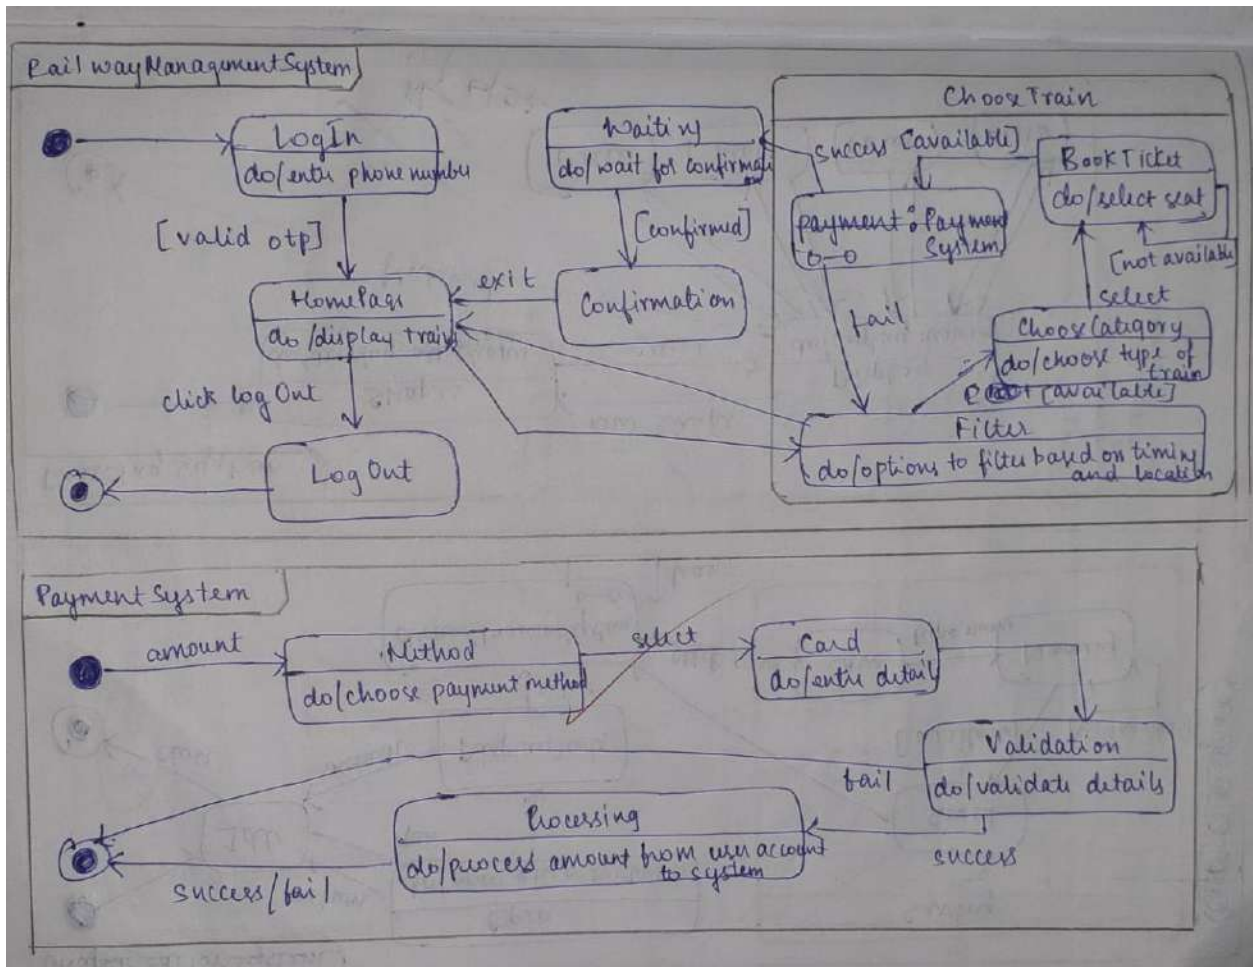 RailwayManagementSystem
LogIn
do/enter phone number
[valid otp]
HomePage
do/display train
click log Out
Log Out
Waiting
do/wait for confirmati
[confirmed]
Confirmation
exit
Choose Train
success [available]
Book Ticket
do/select seat
[not available]
payment : Payment
System
select
fail
Choose Category
do/choose type of
train
[available]
Filter
do/options to filter based on timing
and location
Payment System
amount
Method
do/choose payment method
select
Card
do/enter detail
Validation
do/validate details
fail
success
Processing
do/process amount from user account
to system
success/fail